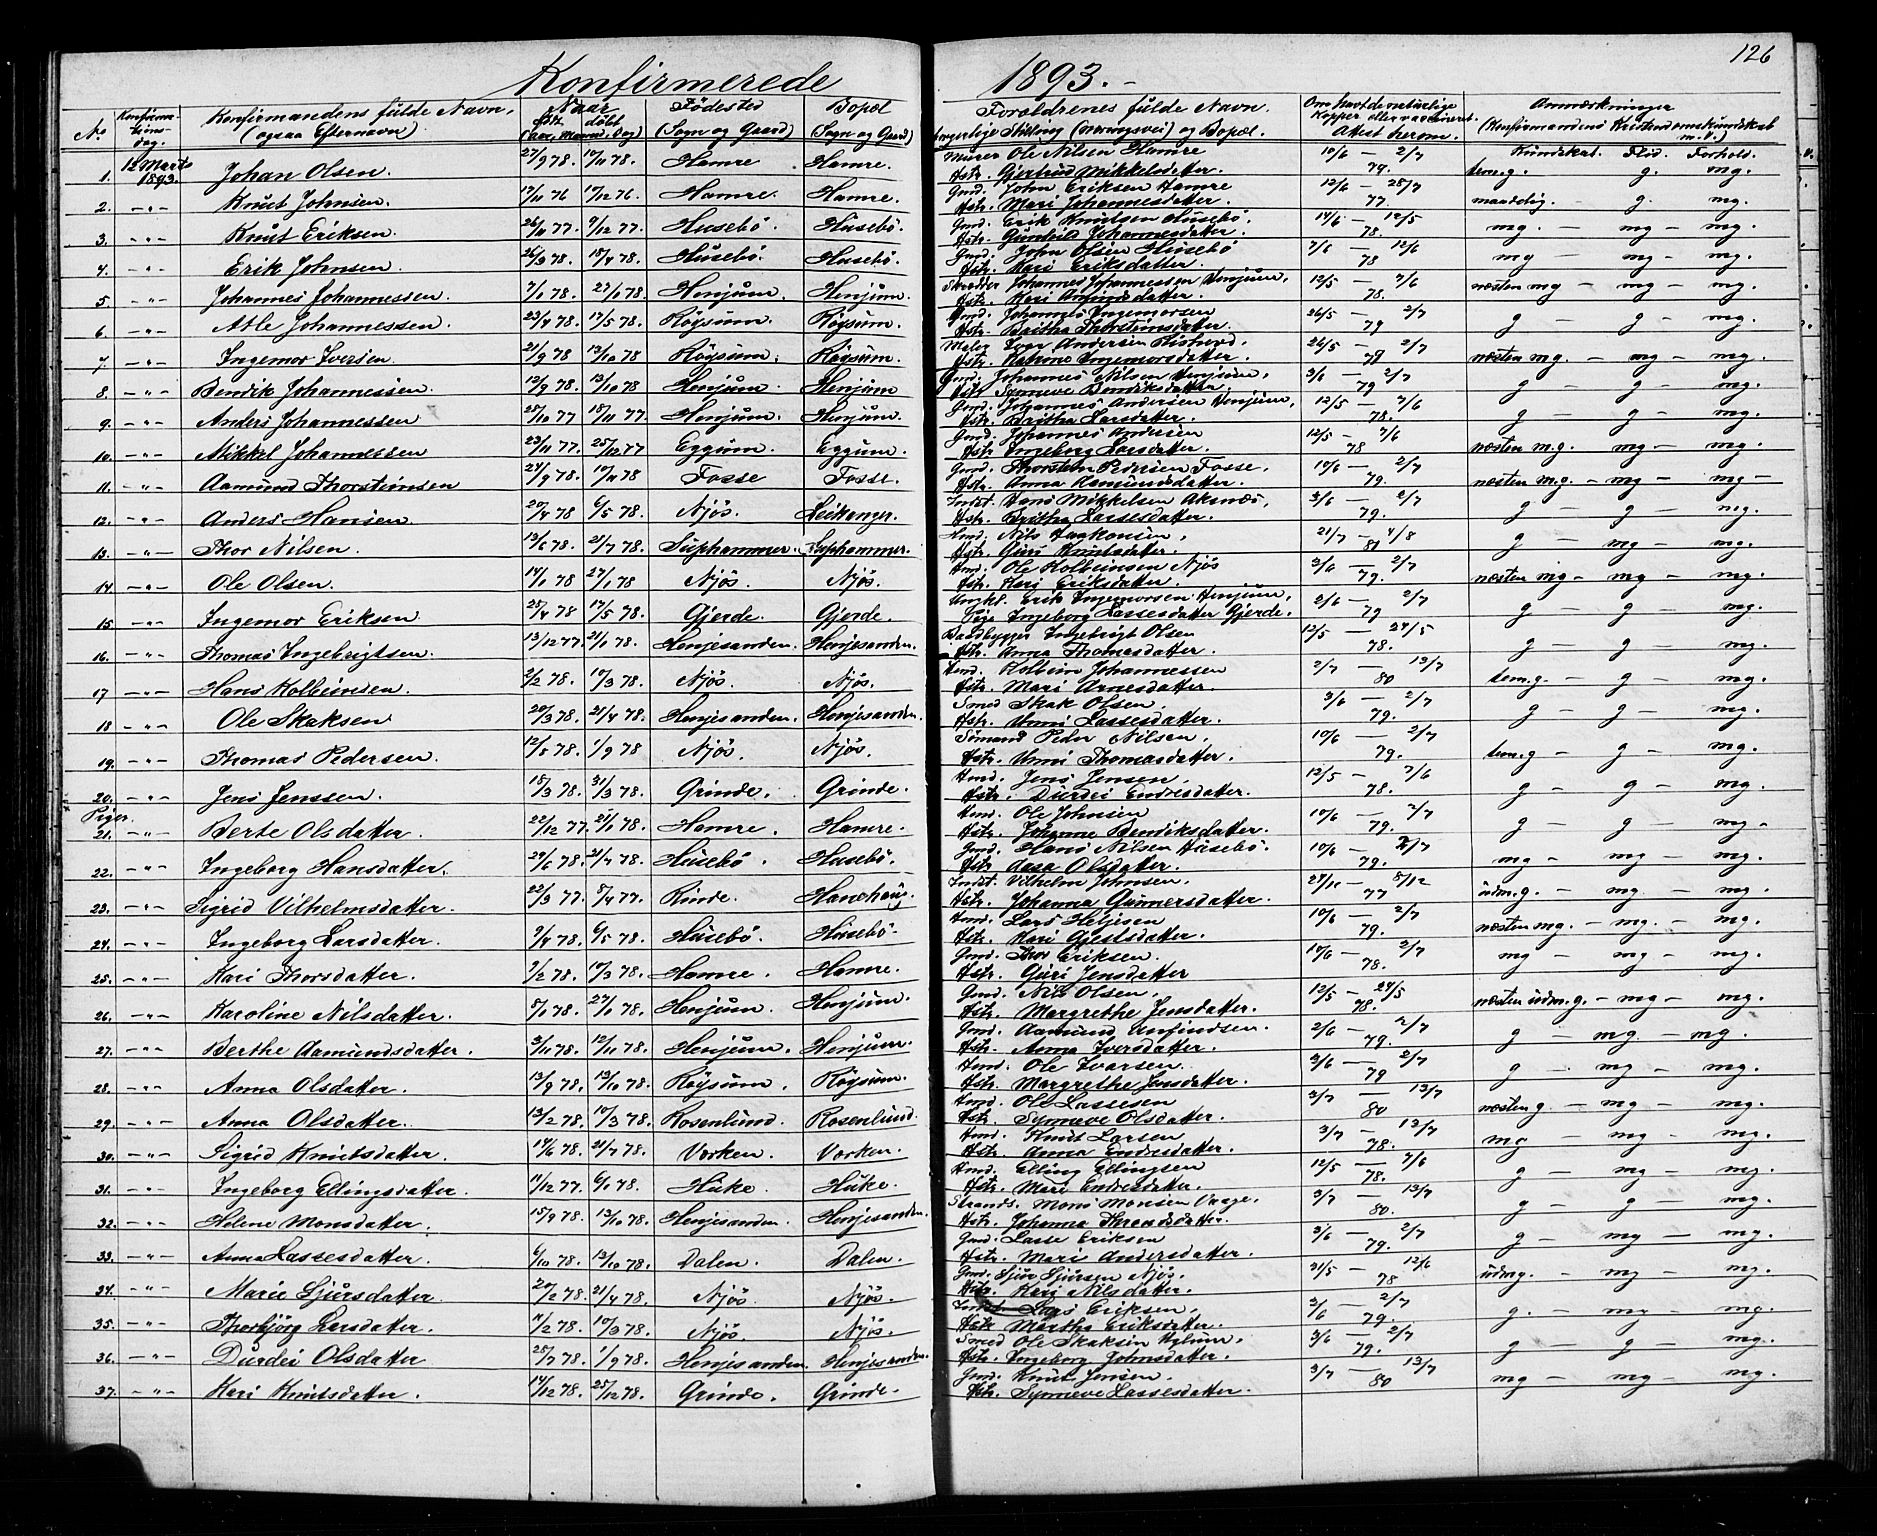 126
Konfirmerede 1893.-
No Konfirmations-dag. Konfirmandens fulde Navn, (ogsaa Efternavn) Naar født døbt (Aar, Maaned, Dag) Fødested (Sogn og Gaard) Bopæl (Sogn og Gaard) Forældrenes fulde Navn, borgerlige Stilling (næringsvei) og Bopæl. Om havt de naturlige Kopper eller vaccineret. Attest herom. Anmærkninger (Konfirmandens Kristendomskundskab m.v.)
Kundskab. Flid. Forhold.
1. 12 Marts 1893. Johan Olsen. 27/9 78. 17/11 78. Hamre. Hamre. Murer Ole Nilsen Hamre Hstr. Gjertrud Mikkelsdatter. 10/6 — 2/7 79. tem.g. g. mg.
2. -"- Knut Johnsen. 17/11 76 17/12 76. Hamre. Hamre. Gmd. John Eriksen Hamre Hstr. Mari Johannesdatter. 12/6 — 28/7 77. maadelig. - g. mg.
3. -"- Knut Eriksen. 26/11 77. 9/12 77. Husebö. Husebö. Gmd. Erik Knutsen Husebö. Hstr. Gunhild Johannesdatter. 14/6 — 12/5 78. mg. — mg — mg.
4. -"- Erik Johnsen. 26/3 78. 18/4 78. Husebö. Husebö. Gmd. John Olsen Husebö Hstr. Kari Eriksdatter. 7/6 — 12/6 78 mg — mg - mg.
5. -"- Johannes Johannessen. 7/1 78. 27/1 78. Henjum. Henjum. Skrædder Johannes Johannessen Henjum. Hstr. Kari Amundsdatter. 12/5 — 7/6 78. næsten mg — mg — mg.
6. -"- Atle Johannessen. 23/4 78. 17/5 78. Röysum. Röysum. Gmd. Johannes Ingemorsen Hstr. Britha Thorsteinsdatter. 26/5 — 2/7 79 g — g — mg.
7. -"- Ingemor Iversen. 21/9 78 13/10 78 Röysum. Röysum. Maler Iver Andersen Hstr. Katrine Ingemorsdatter. 26/5 — 2/7 79 næsten mg. — mg — mg.
8. -"- Bendik Johannessen. 12/9 78. 13/10 78 Henjum. Henjum Gmd. Johannes Nilsen Henjum. Hstr. Synneve Bendiksdatter. 3/6 — 2/7 79 g — g — mg.
9. -"- Anders Johannessen 25/10 77 18/11 77. Henjum. Henjum. Gmd. Johannes Andersen Henjum. Hstr. Britha Larsdatter. 12/5 — 7/6 78. g — g — mg.
10. -"- Mikkel Johannessen 23/11 77. 25/12 77 Eggum. Eggum. Gmd. Johannes Andersen Hstr. Ingeborg Larsdatter. 12/5 — 7/6 78 næsten m.g. mg — mg.
11. -"- Aamund Thorsteinsen 24/9 78. 17/11 78 Fosse Fosse. Gmd. Thorstein Pedersen Fosse. Hstr. Anna Aamundsdatter. 10/6 — 2/7 79. næsten m.g. — mg — mg —
12. -"- Anders Hansen. 20/4 78 6/5 78. Njös. Leikanger. Indst. Hans Mikkelsen Aksnæs. Hstr. Britha Lassesdatter. 3/6 — 2/7 79. g — g — mg.
13. -"- Thor Nilsen. 13/6 78. 21/7 78. Suphammer. Suphammer. Hmd. Nils Haakonsen. Hstr. Guri Knutsdatter. 21/7 — 4/8 81 g — mg — mg.
14. -"- Ole Olsen. 14/1 78 27/1 78 Njös. Njös. Hmd. Ole Kolbeinsen Njös Hstr. Kari Eriksdatter. 3/6 — 2/7 79. næsten mg — mg — mg.
15. -"- Ingemor Eriksen 25/4 78 17/5 78. Gjerde. Gjerde. Ungkl. Erik Ingemorsen Henjum. Pige Ingeborg Lassesdatter Gjerde. 2/6 — 2/7 79 g — g — mg.
16. -"- Thomas Ingebrigtsen. 13/12 77. 21/1 78. Henjesanden. Henjesanden. Baadbygger Ingebrigt Olsen Hstr. Anna Thomasdatter. 12/5 — 24/5 78. g — g — mg.
17 -"- Hans Kolbeinsen. 2/2 78. 17/3 78. Njös. Njös. Hmd. Kolbein Johannessen Hstr. Mari Arnesdatter. 2/7 — 13/7 80 tem.g. — g — mg.
18 -"- Ole Skaksen 20/3 78. 21/4 78. Henjesanden. Henjesanden. Smed Skak Olsen. Hstr. Unni Lassesdatter. 3/6 — 2/7 79. g — g — mg.
19. -"- Thomas Pedersen. 12/8 78. 1/9 78 Njös. Njös. Sömand Peder Nilsen. Hstr. Unni Thomasdatter. 10/6 — 2/7 79. tem.g — g — mg.
20. -"- Jens Jenssen. 18/3 78. 31/3 78. Grinde. Grinde. Hmd. Jens Jensen. Hstr. Durdei Endresdatter. 12/5 — 7/6 78. g — g — mg.
Piger.
21. -"- Berte Olsdatter. 22/12 77. 21/1 78. Hamre. Hamre. Hmd. Ole Johnsen Hstr. Johanne Bendiksdatter. 10/6 — 2/7 79. g — g — mg.
22. -"- Ingeborg Hansdatter. 29/6 78. 21/7 78. Husebö. Husebö. Gmd. Hans Nilsen Husebö. Hstr. Aasa Olsdatter. 10/6 — 2/7 79. mg — mg — mg.
23. -"- Sigrid Vilhelmsdatter. 22/3 77. 8/4 77. Rinde. Hanehaug. Indst. Vilhelm Johnsen. Hstr. Johanna Gunnersdatter. 24/11 — 8/12 77 udm.g. — mg. — mg.
24. -"- Ingeborg Larsdatter. 9/4 78. 6/5 78. Husebö. Husebö. Hmd. Lars Heljesen Hstr. Kari Gjestsdatter. 10/6 — 2/7 79. næsten mg. — mg — mg.
25. -"- Kari Thorsdatter. 7/2 78. 17/3 78. Hamre. Hamre. Gmd. Thor Eriksen. Hstr. Guri Jensdatter 10/6 — 2/7 78. mg — mg — mg.
26. -"- Karoline Nilsdatter. 8/1 78. 27/1 78. Henjum. Henjum. Gmd. Nils Olsen. Hstr. Margrethe Jensdatter. 12/5 — 24/5 78. næsten udm.g. — mg — mg.
27. -"- Berthe Aamundsdatter. 3/11 78. 12/11 78. Henjum. Henjum. Gmd. Aamund Anfindsen. Hstr. Anna Iversdatter. 2/6 — 2/7 79. g — mg. mg.
28. -"- Anna Olsdatter. 13/9 78. 13/10 78. Röysum. Röysum. Hmd. Ole Ivarsen. Hstr. Margrethe Jensdatter. 3/6 — 2/7 79 g — mg — mg.
29. -"- Anna Olsdatter. 13/2 78. 17/3 78. Rosenlund. Rosenlund. Hmd. Ole Lassesen Hstr. Synneve Olsdatter. 3/7 — 13/7 80 næsten g. — mg — mg.
30. -"- Sigrid Knutsdatter. 14/6 78. 21/7 78. Vorken. Vorken. Hmd. Knut Larsen Hstr. Anna Endresdatter. 3/7 — 13/7 78. mg — mg — mg.
31. -"- Ingeborg Ellingsdatter. 11/12 77. 6/1 78. Huke. Huke. Hmd. Elling Ellingsen Hstr. Mari Endresdatter. 12/5 — 7/6 78. g — mg — mg.
32. -"- Helene Monsdatter. 15/9 78. 13/10 78. Henjesanden. Henjesanden. Strands. Mons Monsen Vaage. Hstr. Johanna Throndsdatter. 3/7 — 13/7 80. g — g — mg.
33. -"- Anna Lassesdatter. 6/10 78. 13/10 78. Dalen. Dalen. Gmd. Lasse Eriksen Hstr. Mari Andersdatter. 3/6 — 2/7 79. g — mg — mg.
34. -"- Marie Sjursdatter. 20/2 78. 21/4 78. Njös. Njös. Gmd. Sjur Sjursen Njös. Hstr. Kari Nilsdatter. 31/5 — 12/6 78 udmg. — mg — mg.
35. -"- Thorbjörg Larsdatter. 11/2 78. 10/3 78. Njös. Njös. Lars Eriksen. Hstr. Martha Eriksdatter. 3/6 — 2/7 79. g. — mg — mg.
36. -"- Durdei Olsdatter 25/7 78. 1/9 78. Henjesanden. Henjesanden. Smed Ole Skaksen Njös. Hstr. Ingeborg Johnsdatter. 3/6 — 2/7 79. g — g — mg.
37. -"- Kari Knutsdatter. 14/12 78. 25/12 78. Grinde. Grinde. Gmd. Knut Jensen. Hstr. Synneve Lassesdatter. 3/7 — 13/7 80 mg — mg — mg.